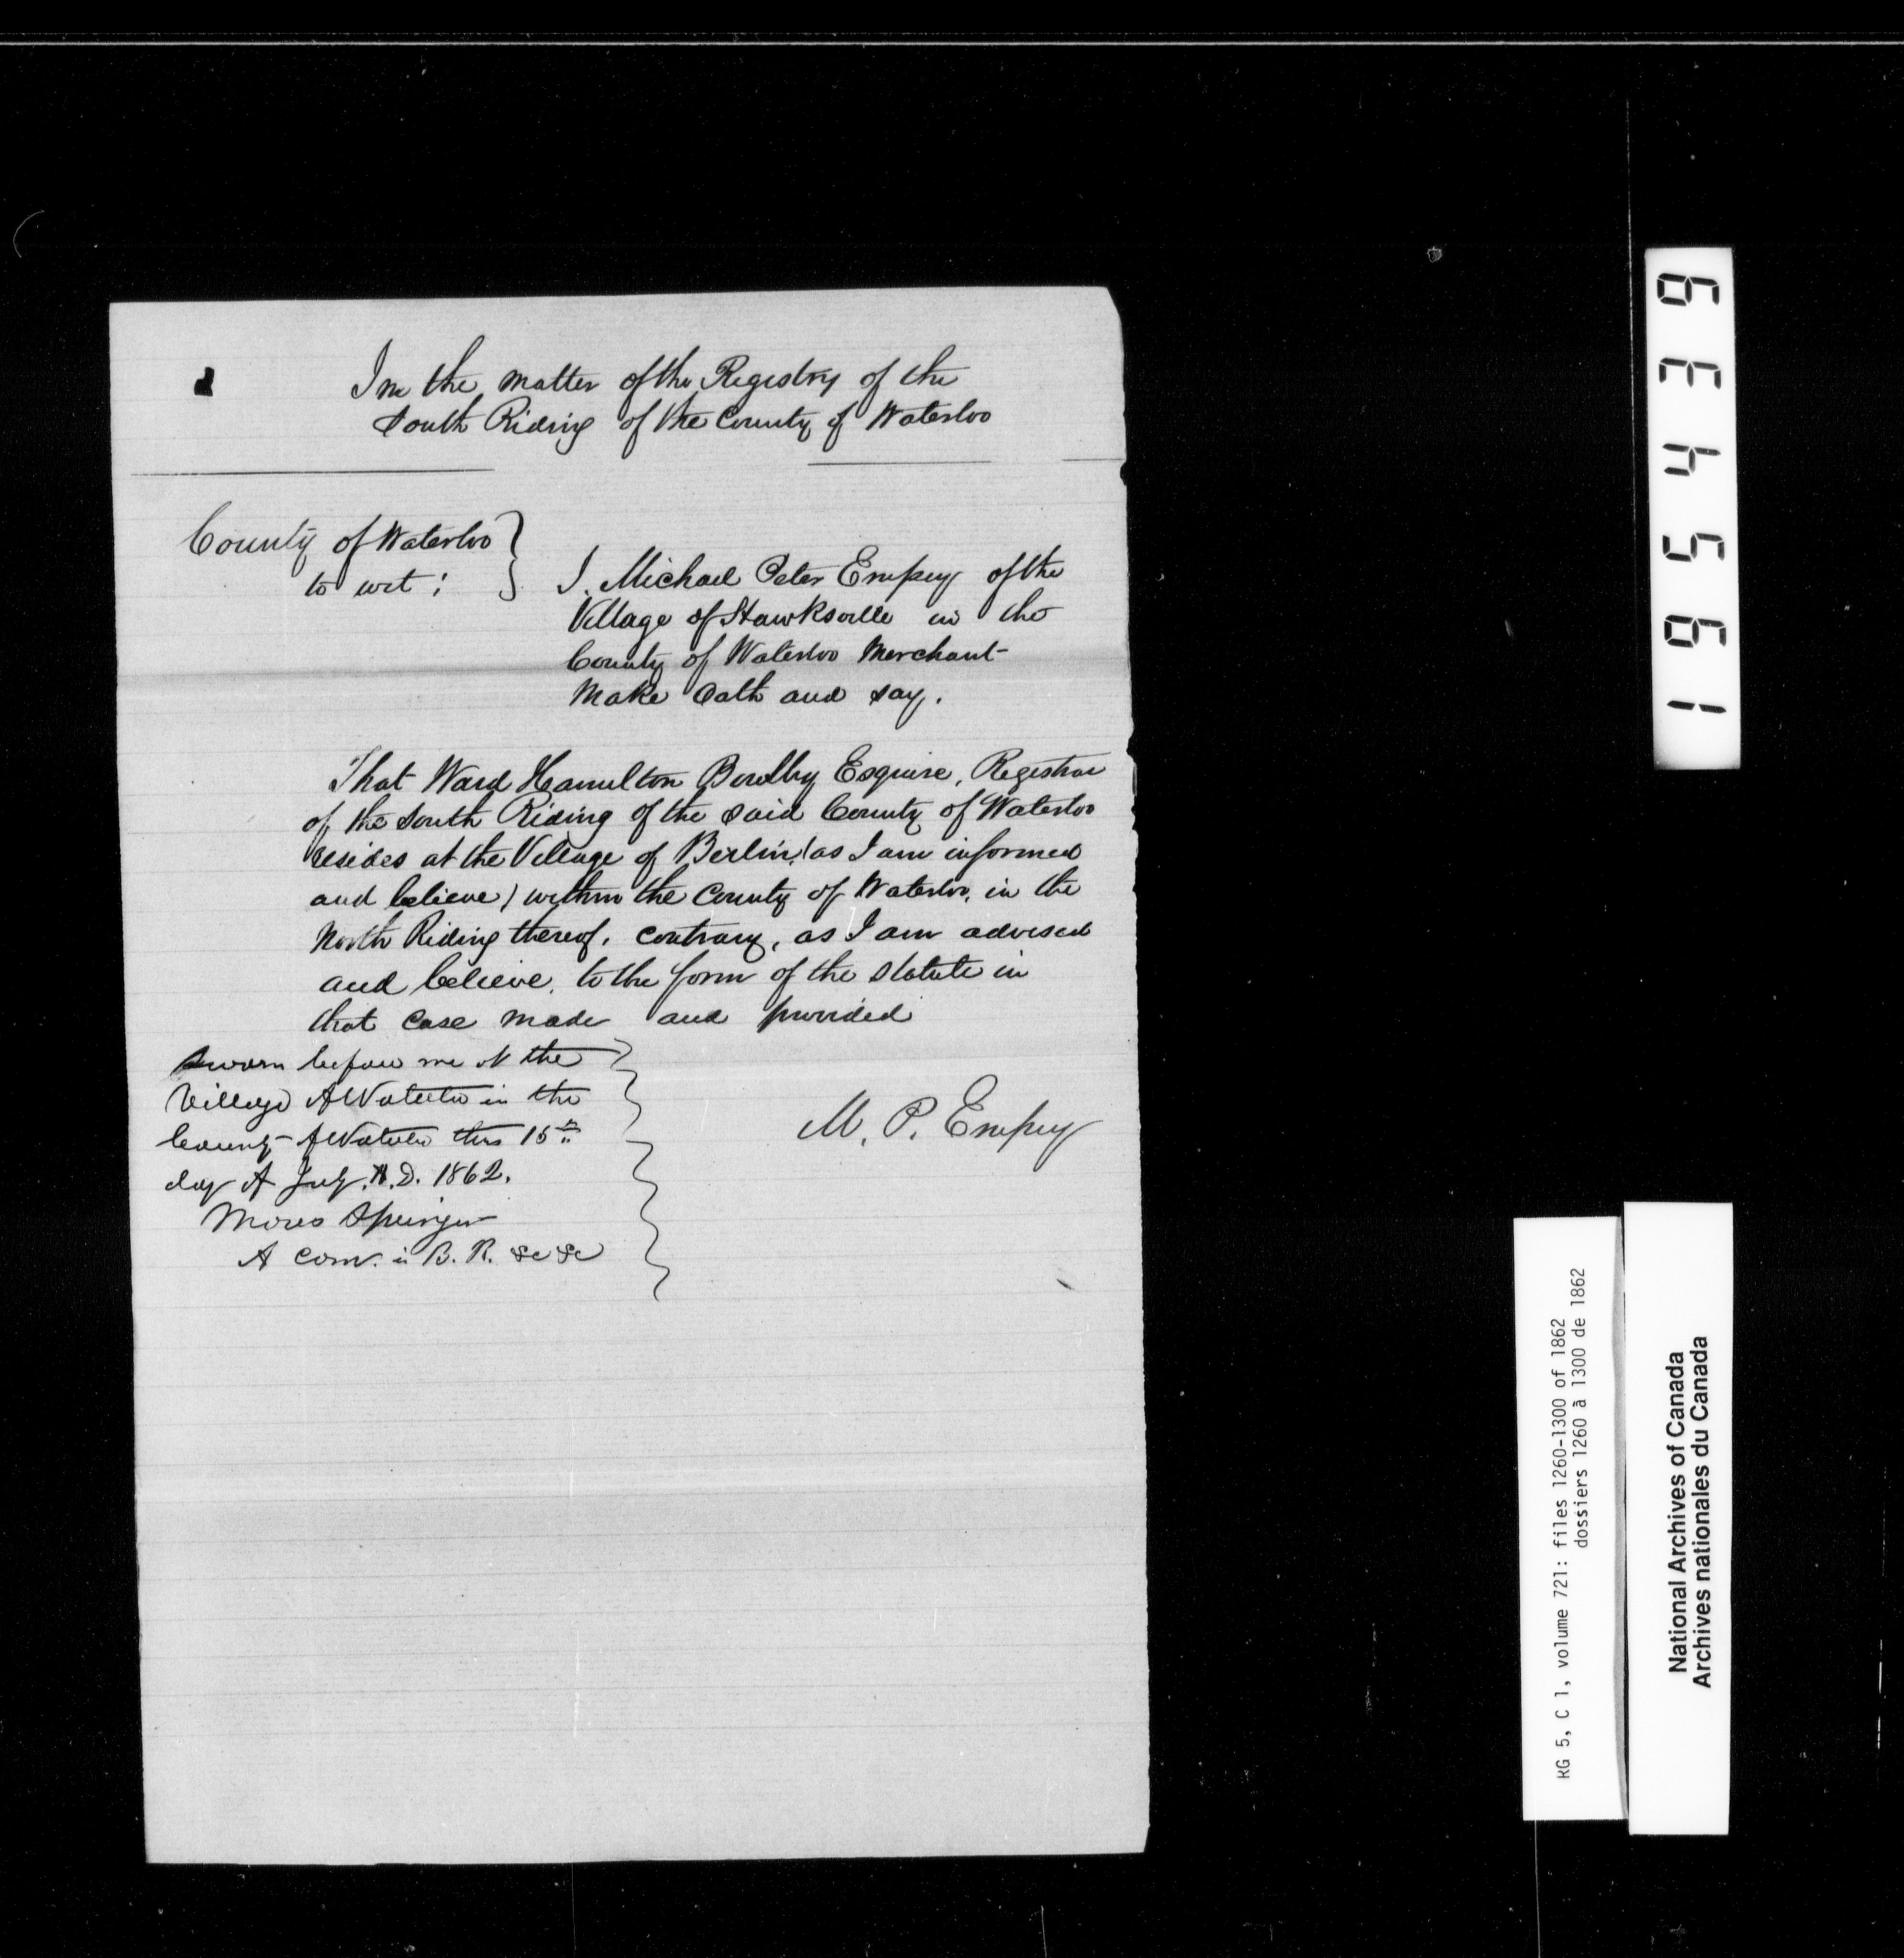 In the matter of the Registry of the
South Riding of the County of Waterloo
County of Waterloo
to wit :
I. Michael Peter Empey of the
Village of Hawksville in the
County of Waterloo Merchant
Make Oath and say.
That Ward Hamilton Bowlby Esquire, Registrar
of the South Riding of the said County of Waterloo
resides at the Village of Berlin, (as I am informed
and believe) within the County of Waterloo, in the
North Riding thereof, contrary, as I am advised
and believe, to the form of the statute in
that case made and provided
Sworn before me at the
Village of Waterloo in the
County of Waterloo this 15th
day of July. A.D. 1862.
Moses Springer
A Com. in B. R. &c &c
M. P. Empey
195439
RG 5, C 1, volume 721: files 1260-1300 of 1862
dossiers 1260 à 1300 de 1862
National Archives of Canada
Archives nationales du Canada